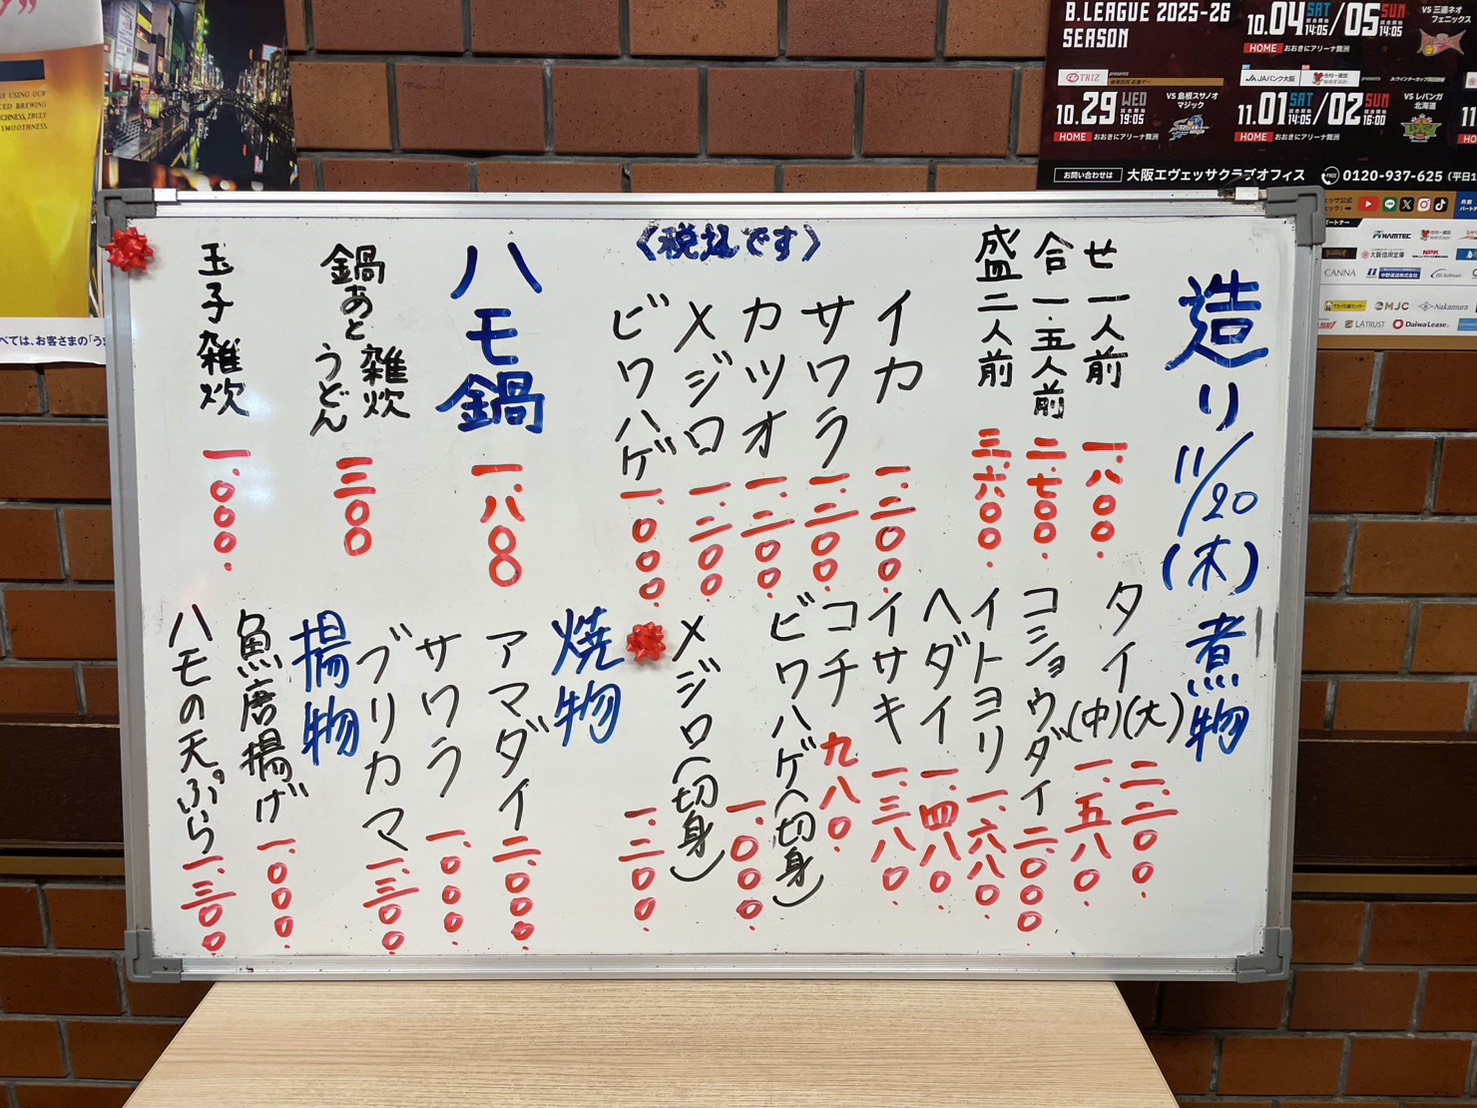 造り 11/20(木)
盛合せ
一人前 一.八〇〇.
一.五人前 二.七〇〇.
二人前 三.六〇〇.
イカ 一.二〇〇.
サワラ 一.二〇〇.
カツオ 一.二〇〇.
メジロ 一.二〇〇.
ビワハゲ 一.〇〇〇.
〈税込です〉
ハモ鍋 一.八〇〇
鍋あと 雑炊 うどん 三〇〇
玉子雑炊 一.〇〇〇.
煮物
タイ(大) 二.二〇〇.
(中) 一.五八〇.
コショウダイ 二.〇〇〇
イトヨリ 一.六八〇.
ヘダイ 一.四八〇.
イサキ 一.三八〇.
コチ 九八〇.
ビワハゲ(切身) 一.〇〇〇.
メジロ(切身) 一.二〇〇.
焼物
アマダイ 二.〇〇〇.
サワラ 一.〇〇〇.
ブリカマ 一.三〇〇.
揚物
魚唐揚げ 一.〇〇〇.
ハモの天ぷら 一.三〇〇.
Y USING OUR
CED BREWING
CHNESS, TRULY
SMOOTHNESS.
べては、お客さまの「うま
B.LEAGUE 2025-26
SEASON
10.04 SAT 14:05/05 SUN 14:05
VS 三遠ネオフェニックス
HOME おおきにアリーナ舞洲
TRIZ presents
JAバンク大阪
10.29 WED 19:05
VS 島根スサノオマジック
HOME おおきにアリーナ舞洲
11.01 SAT 14:05/02 SUN 16:00
VS レバンガ北海道
HOME おおきにアリーナ舞洲
お問い合わせは 大阪エヴェッサクラブオフィス 0120-937-625 (平日1
KAMTEC
大阪信用金庫
NPK
CANNA
MJC
Nakamura
LATRUST
DaiwaLease.